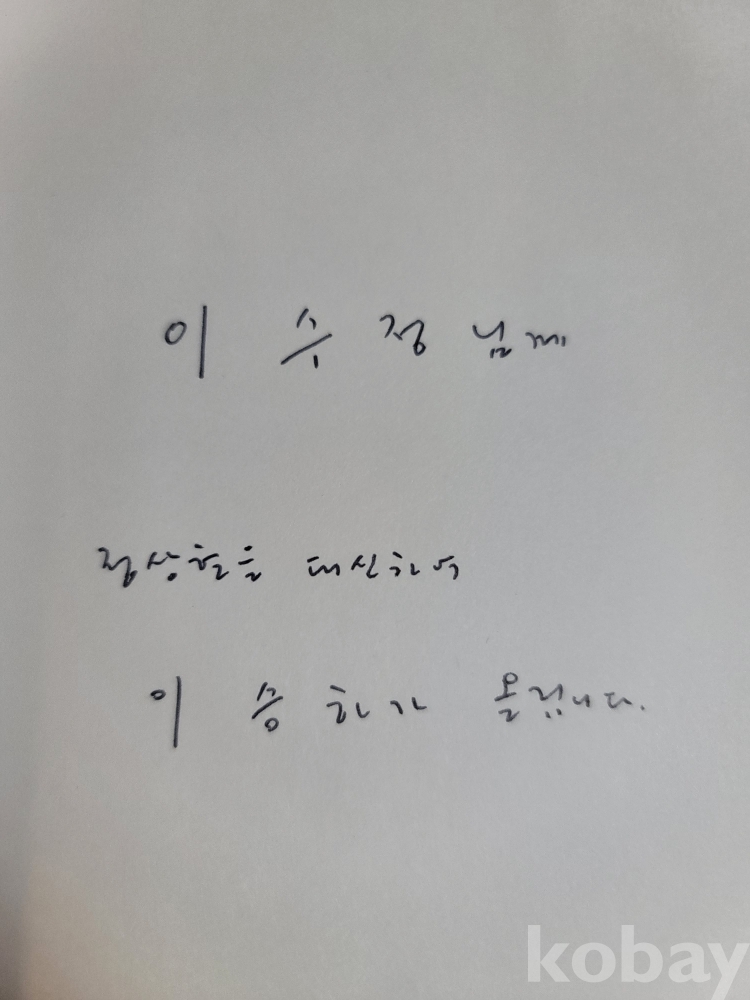 이 수 정 님께
정상학을 대신하여
이 승 하가 올립니다.
kobay